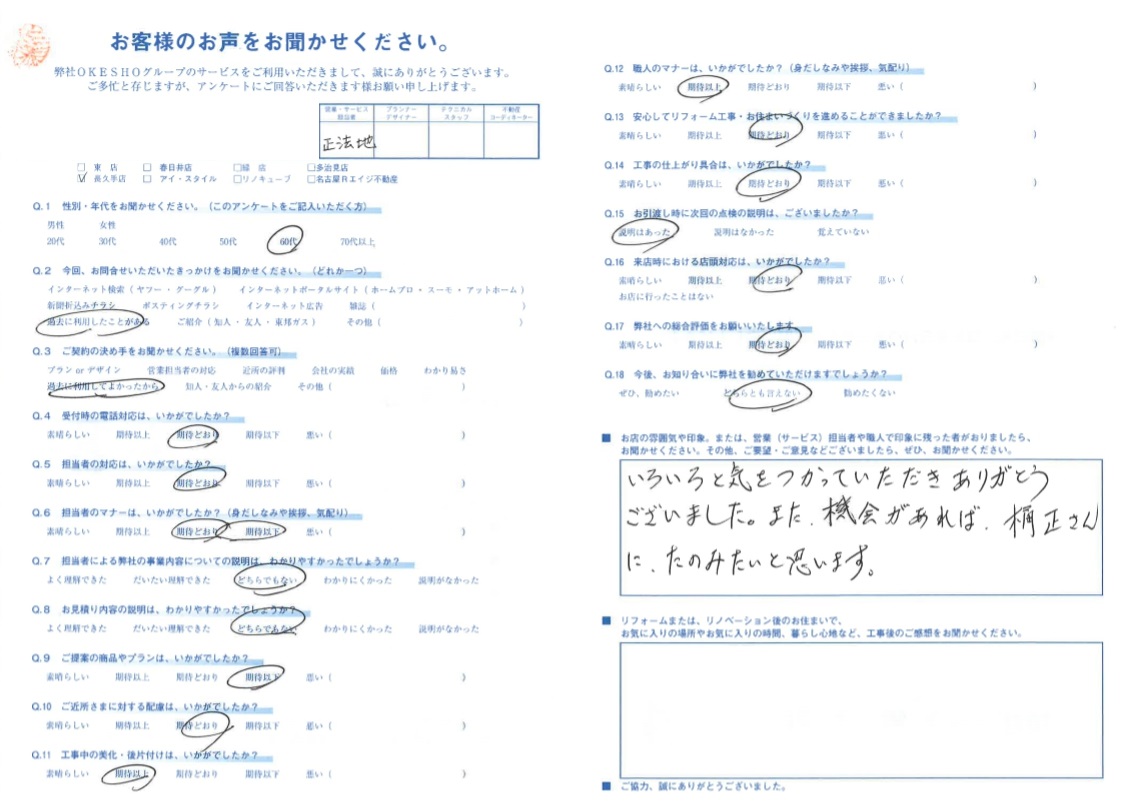 お客様のお声をお聞かせください。
弊社OKESHOグループのサービスをご利用いただきまして、誠にありがとうございます。
ご多忙と存じますが、アンケートにご回答いただきます様お願い申し上げます。
営業・サービス担当者 プランナーデザイナー テクニカルスタッフ 不動産コーディネーター
正法地
□ 東 店 □ 春日井店 □緑 店 □多治見店
☑ 長久手店 □ アイ・スタイル □リノキューブ □名古屋Rエイジ不動産
Q.1 性別・年代をお聞かせください。（このアンケートをご記入いただく方）
男性 女性
20代 30代 40代 50代 60代 70代以上
Q.2 今回、お問合せいただいたきっかけをお聞かせください。（どれか一つ）
インターネット検索（ ヤフー ・ グーグル ） インターネットポータルサイト（ ホームプロ ・ スーモ ・ アットホーム ）
新聞折込みチラシ ポスティングチラシ インターネット広告 雑誌（ ）
過去に利用したことがある ご紹介（ 知人 ・ 友人 ・ 東邦ガス ） その他（ ）
Q.3 ご契約の決め手をお聞かせください。（複数回答可）
プラン or デザイン 営業担当者の対応 近所の評判 会社の実績 価格 わかり易さ
過去に利用してよかったから 知人・友人からの紹介 その他（ ）
Q.4 受付時の電話対応は、いかがでしたか？
素晴らしい 期待以上 期待どおり 期待以下 悪い（ ）
Q.5 担当者の対応は、いかがでしたか？
素晴らしい 期待以上 期待どおり 期待以下 悪い（ ）
Q.6 担当者のマナーは、いかがでしたか？（身だしなみや挨拶、気配り）
素晴らしい 期待以上 期待どおり 期待以下 悪い（ ）
Q.7 担当者による弊社の事業内容についての説明は、わかりやすかったでしょうか？
よく理解できた だいたい理解できた どちらでもない わかりにくかった 説明がなかった
Q.8 お見積り内容の説明は、わかりやすかったでしょうか？
よく理解できた だいたい理解できた どちらでもない わかりにくかった 説明がなかった
Q.9 ご提案の商品やプランは、いかがでしたか？
素晴らしい 期待以上 期待どおり 期待以下 悪い（ ）
Q.10 ご近所さまに対する配慮は、いかがでしたか？
素晴らしい 期待以上 期待どおり 期待以下 悪い（ ）
Q.11 工事中の美化・後片付けは、いかがでしたか？
素晴らしい 期待以上 期待どおり 期待以下 悪い（ ）
Q.12 職人のマナーは、いかがでしたか？（身だしなみや挨拶、気配り）
素晴らしい 期待以上 期待どおり 期待以下 悪い（ ）
Q.13 安心してリフォーム工事・お住まいづくりを進めることができましたか？
素晴らしい 期待以上 期待どおり 期待以下 悪い（ ）
Q.14 工事の仕上がり具合は、いかがでしたか？
素晴らしい 期待以上 期待どおり 期待以下 悪い（ ）
Q.15 お引渡し時に次回の点検の説明は、ございましたか？
説明はあった 説明はなかった 覚えていない
Q.16 来店時における店頭対応は、いかがでしたか？
素晴らしい 期待以上 期待どおり 期待以下 悪い（ ）
お店に行ったことはない
Q.17 弊社への総合評価をお願いいたします。
素晴らしい 期待以上 期待どおり 期待以下 悪い（ ）
Q.18 今後、お知り合いに弊社を勧めていただけますでしょうか？
ぜひ、勧めたい どちらとも言えない 勧めたくない
■ お店の雰囲気や印象。または、営業（サービス）担当者や職人で印象に残った者がおりましたら、
お聞かせください。その他、ご要望・ご意見などございましたら、ぜひ、お聞かせください。
いろいろと気をつかっていただきありがとう
ございました。また、機会があれば、桶正さん
に、たのみたいと思います。
■ リフォームまたは、リノベーション後のお住まいで、
お気に入りの場所やお気に入りの時間、暮らし心地など、工事後のご感想をお聞かせください。
■ ご協力、誠にありがとうございました。